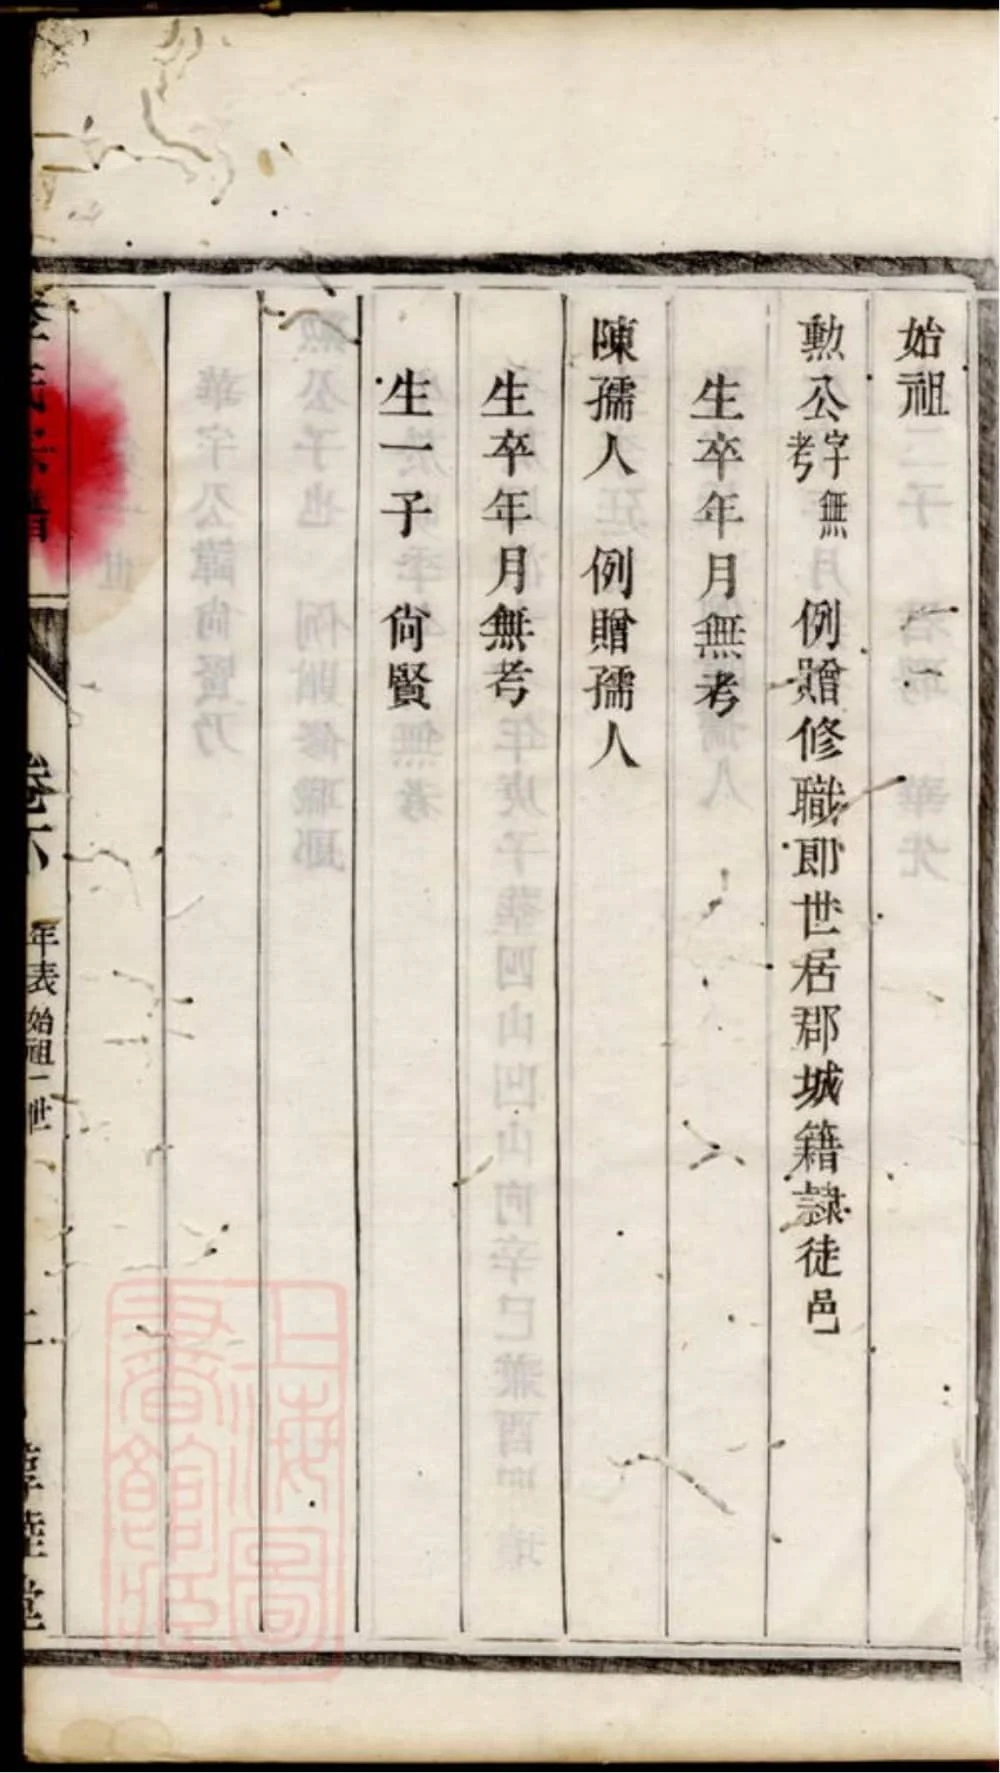 始祖
勲公字無考 例贈修職郎世居郡城籍隸徒邑
生卒年月無考
陳孺人 例贈孺人
生卒年月無考
生一子尙賢
卷六 年表 始祖一世
上海圖書館藏